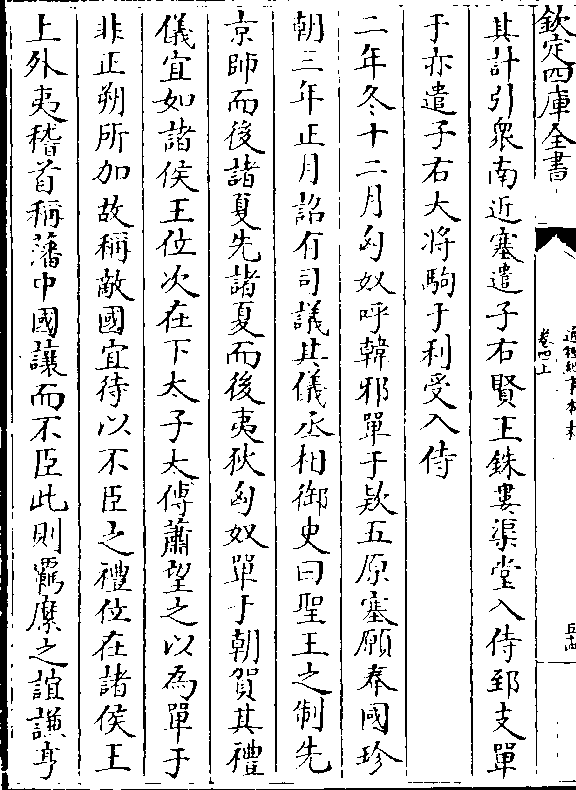 欽定四庫全書
卷四上
其計引衆南近塞遣子右賢王銖婁渠堂入侍郅支單
于亦遣子右大将駒于利受入侍
二年冬十二月匈奴呼韓邪單于欵五原塞願奉國珍
朝三年正月詔有司議其儀丞相御史曰聖王之制先
京師而後諸夏先諸夏而後夷狄匈奴單于朝賀其禮
儀宜如諸侯王位次在下太子太傅蕭望之以為單于
非正朔所加故稱敵國宜待以不臣之禮位在諸侯王
上外夷稽首稱藩中國讓而不臣此則羈縻之誼謙亨